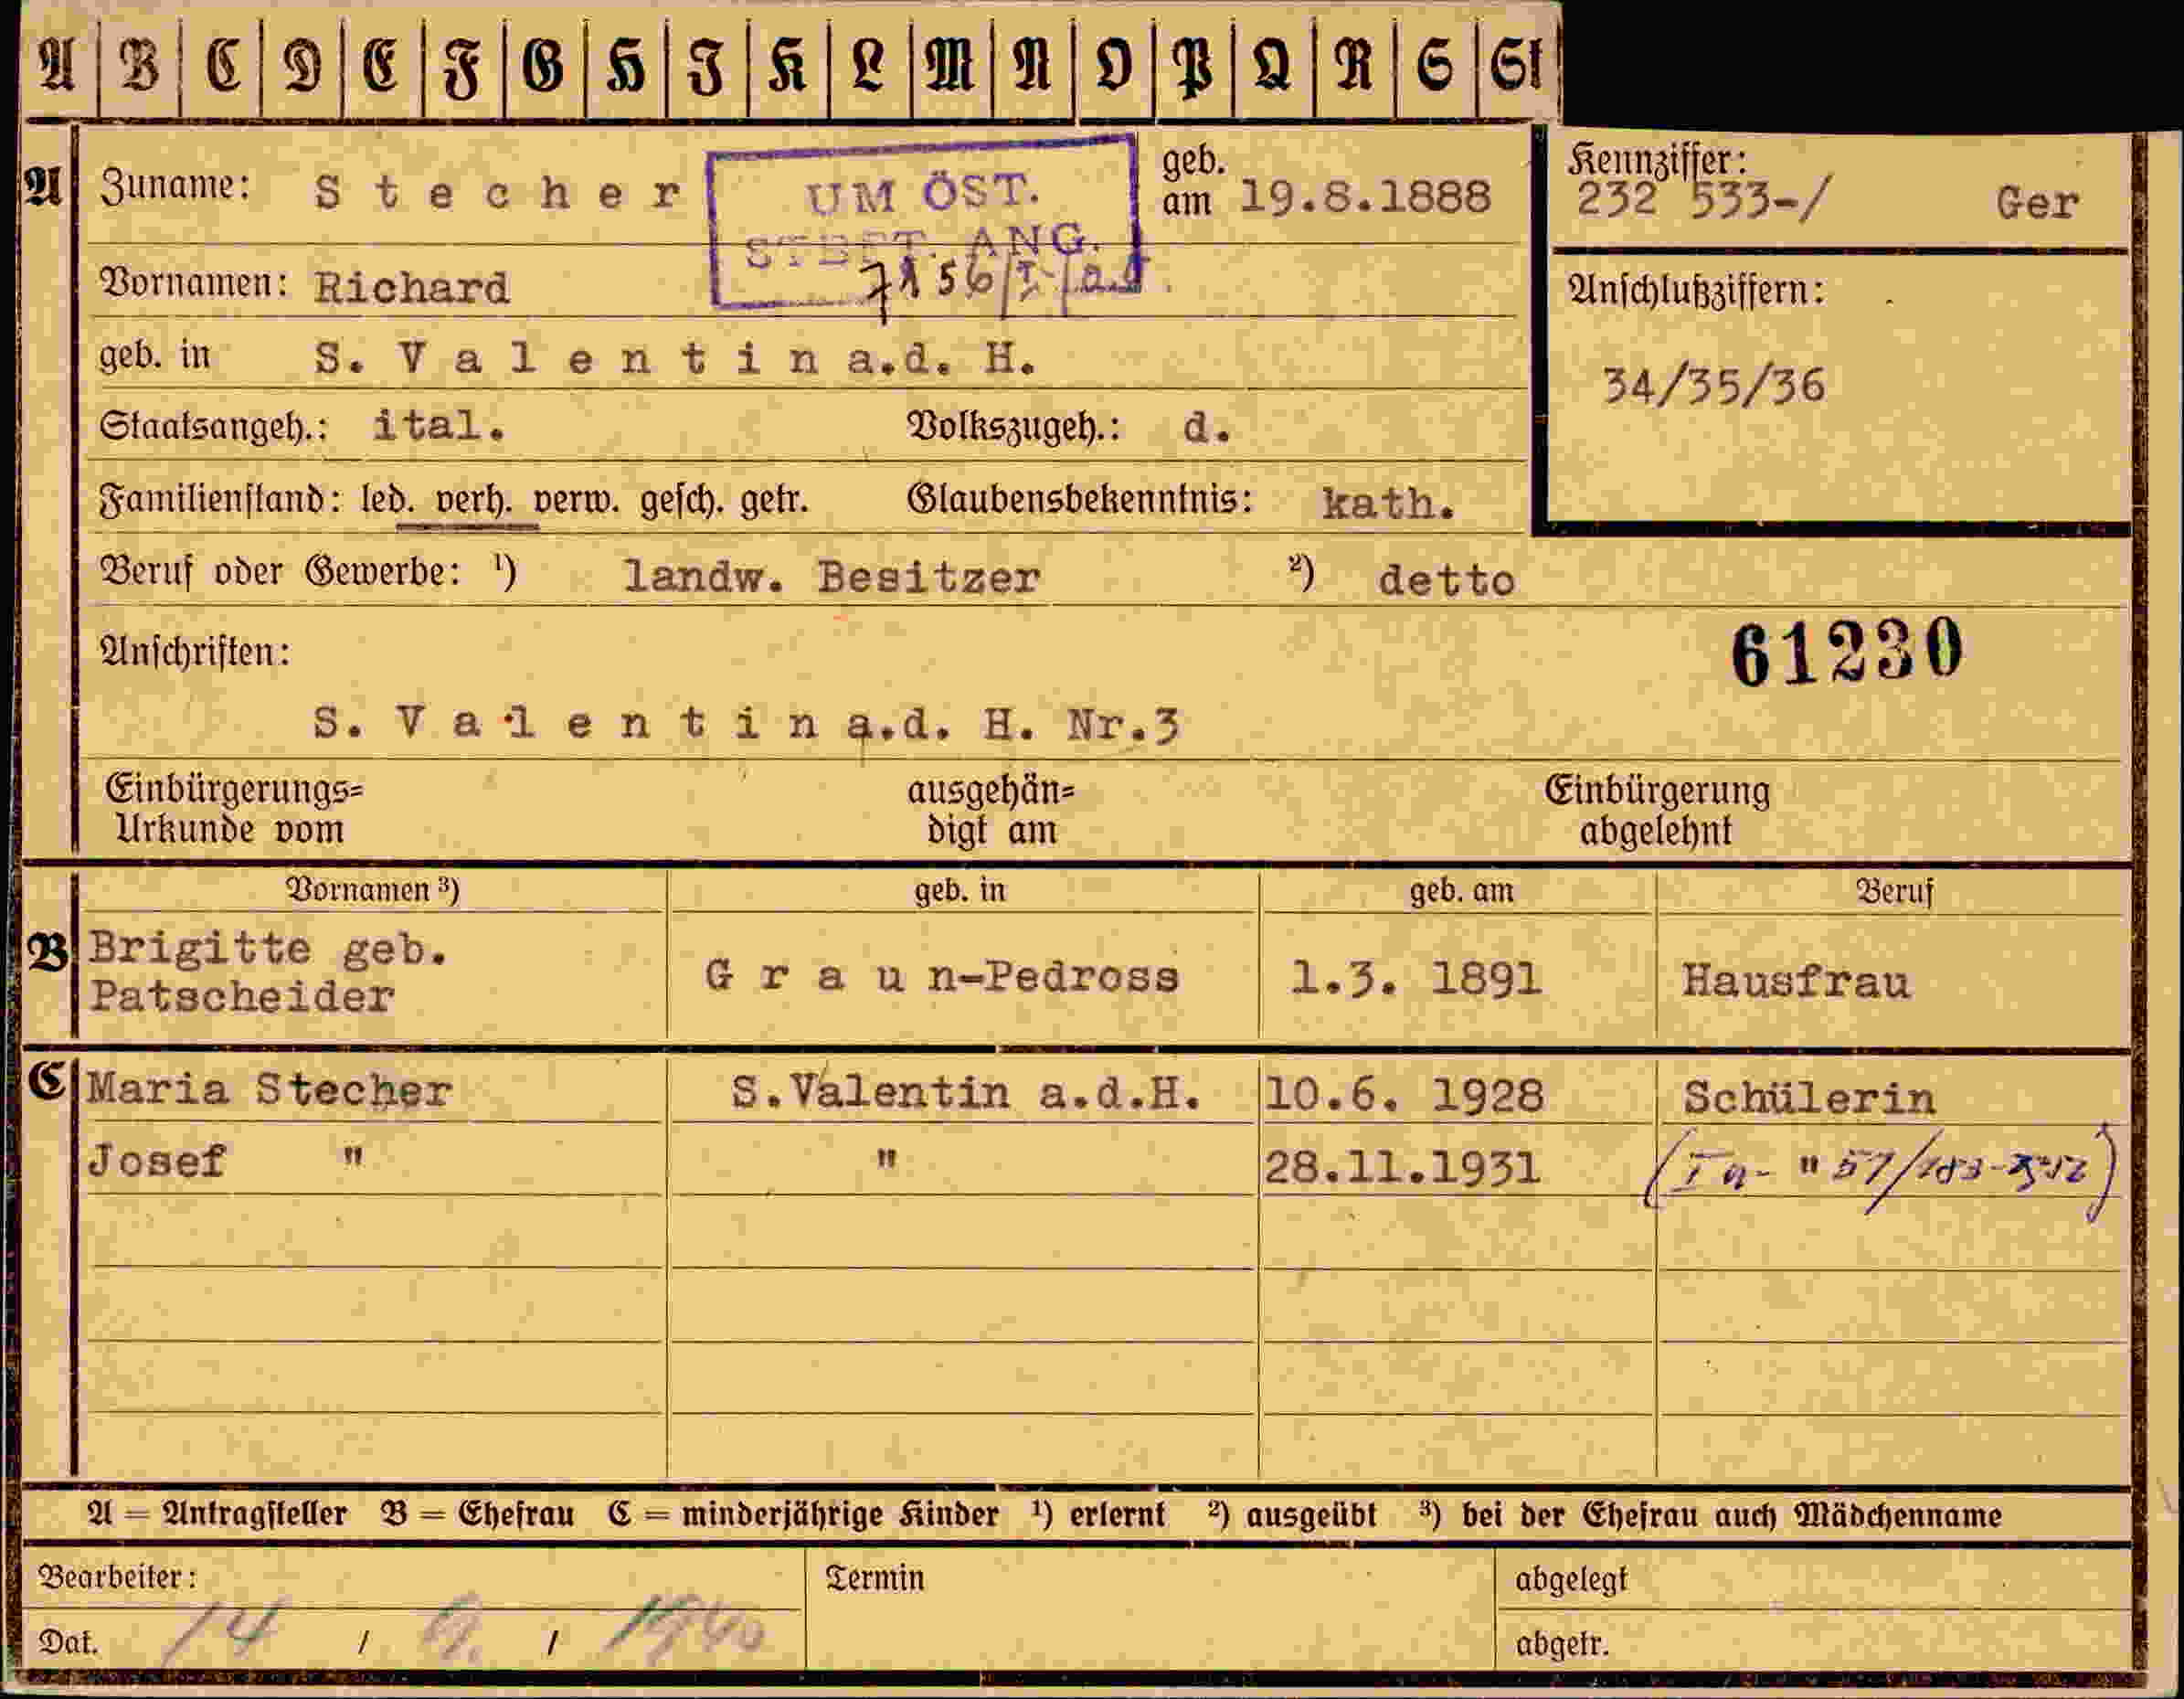 A B C D E F G H I K L M N O P Q R S St
A Zuname: Stecher
UM ÖST.
STBFT. ANG.
geb.
am 19.8.1888
Kennziffer:
232 533-/ Ger
Vornamen: Richard
Anschlußziffern:
geb. in S. Valentin a.d. H.
34/35/36
Staatsangeh.: ital. Volkszugeh.: d.
Familienstand: led. verh. verw. gesch. getr. Glaubensbekenntnis: kath.
Beruf oder Gewerbe: ¹) landw. Besitzer ²) detto
Anschriften:
61230
S. Valentin a.d. H. Nr.3
Einbürgerungs=
Urkunde vom
ausgehän=
digt am
Einbürgerung
abgelehnt
Vornamen ³) geb. in geb. am Beruf
B Brigitte geb.
Patscheider
Graun-Pedross 1.3. 1891 Hausfrau
C Maria Stecher S.Valentin a.d.H. 10.6. 1928 Schülerin
Josef " " 28.11.1931
A = Antragsteller B = Ehefrau C = minderjährige Kinder ¹) erlernt ²) ausgeübt ³) bei der Ehefrau auch Mädchenname
Bearbeiter: Termin abgelegt
Dat. 14 / 9. / 1940 abgetr.